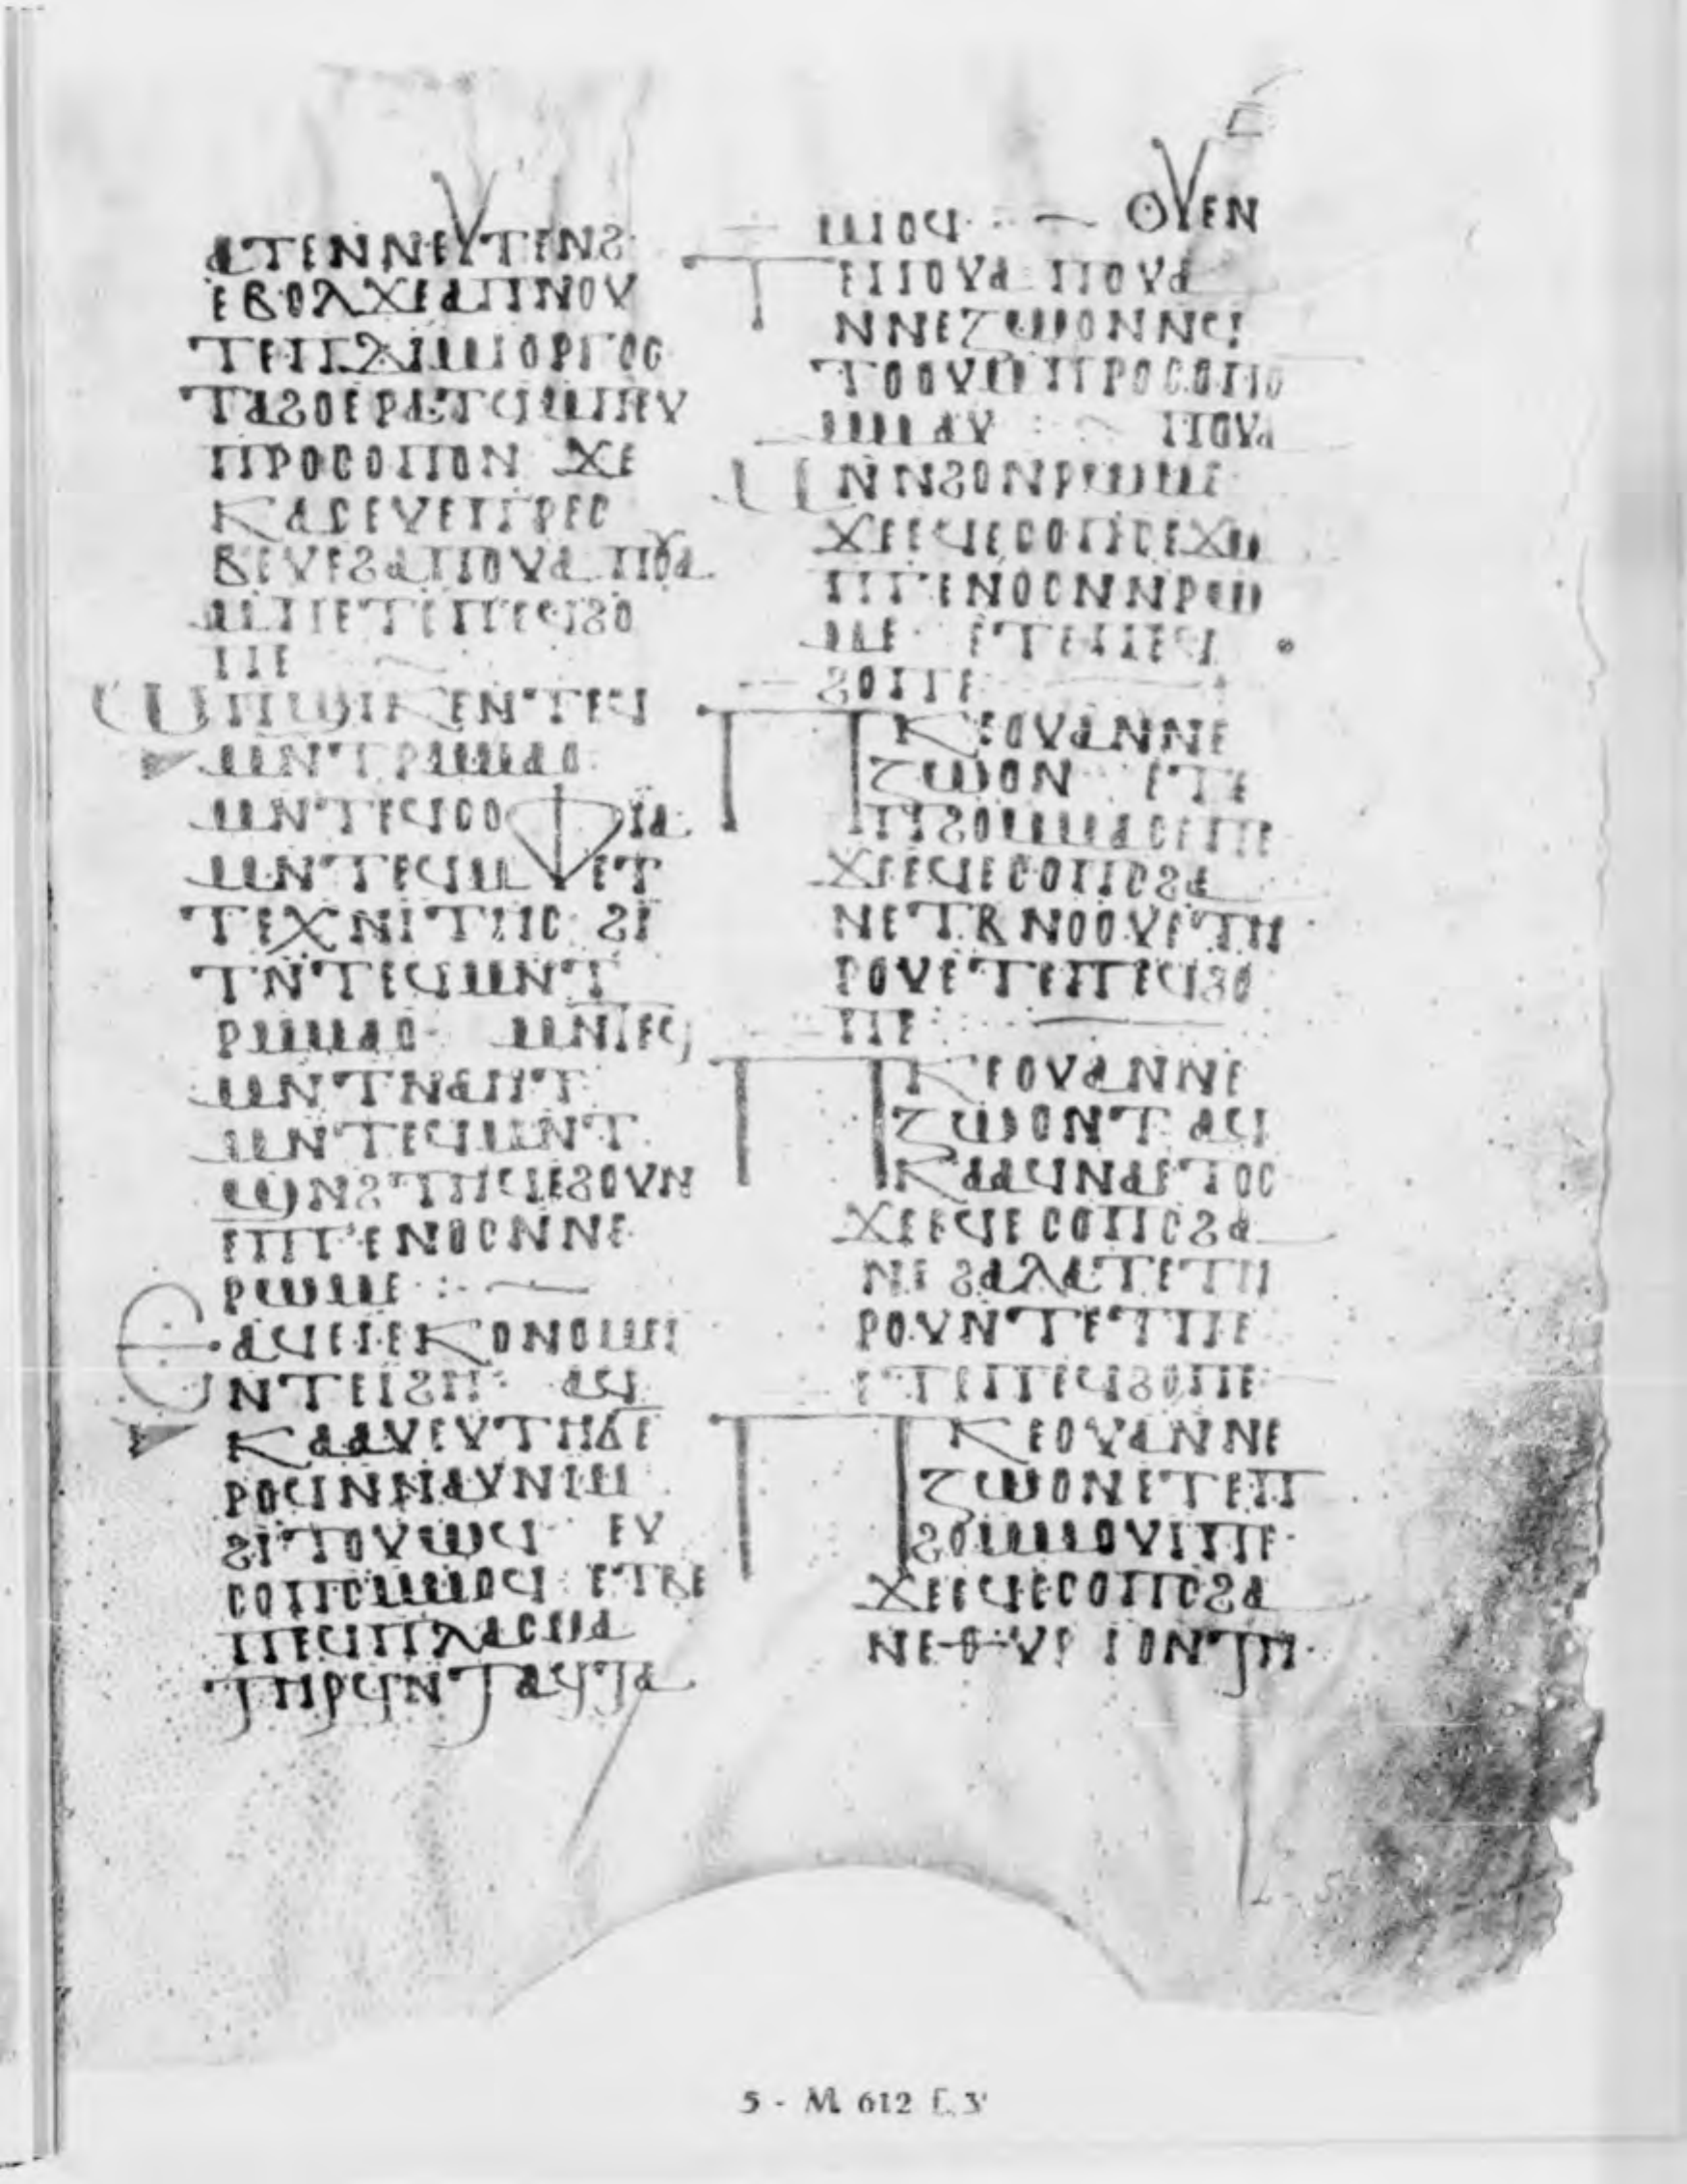 ⲁⲧⲉⲛⲛⲉⲩⲧⲉⲛϩ
ⲉⲃⲟⲗϫⲉⲁⲡⲛⲟⲩ
ⲧⲉⲡⲇⲓⲙⲓⲟⲣⲅⲟⲥ
ⲧⲁϩⲟⲉⲣⲁⲧϥⲙⲡⲉⲩ
ⲡⲣⲟⲥⲟⲡⲟⲛ ϫⲉ
ⲕⲁⲥⲉⲩⲉⲡⲣⲉⲥ
ⲃⲉⲩⲉϩⲁⲡⲟⲩⲁ ⲡⲟⲩⲁ
ⲙⲡⲉⲧⲉⲡⲉϥϩⲟ
ⲡⲉ
ⲱⲡϣⲓⲕⲉⲛⲧⲉϥ
ⲙⲛⲧⲣⲙⲙⲁⲟ
ⲙⲛⲧⲉϥⲥⲟⲫⲓⲁ
ⲙⲛⲧⲉϥⲙⲉⲧ
ⲧⲉⲭⲛⲓⲧⲏⲥ ϩⲓ
ⲧⲛⲧⲉϥⲙⲛⲧ
ⲣⲙⲙⲁⲟ ⲙⲛⲧⲉϥ
ⲙⲛⲧⲛⲁⲏⲧ
ⲙⲛⲧⲉϥⲙⲛⲧ
ϣⲛϩⲧⲏϥⲉϩⲟⲩⲛ
ⲉⲡⲅⲉⲛⲟⲥⲛⲛⲉ
ⲣⲱⲙⲉ
ⲉⲁϥⲉⲓⲉⲕⲟⲛⲟⲙⲉⲓ
ⲛⲧⲉⲓϩⲏ ⲁϥ
ⲕⲁⲁⲩⲉⲩⲧⲏϭⲉ
ⲣⲟϥⲛⲛⲁⲩⲛⲓⲙ
ϩⲓⲧⲟⲩⲱϥ ⲉⲩ
ⲥⲟⲡⲥⲙⲙⲟϥ ⲉⲧⲃⲉ
ⲡⲉϥⲡⲗⲁⲥⲙⲁ
ⲧⲏⲣϥⲛⲧⲁϥⲧⲁ
ⲙⲓⲟϥ ⲟⲩⲉⲛ
ⲧⲉⲡⲟⲩⲁ ⲡⲟⲩⲁ
ⲛⲛⲉⲍⲱⲟⲛⲛϥ
ⲧⲟⲟⲩⲙⲡⲣⲟⲥⲟⲡⲟ
ⲙⲙⲁⲩ ⲡⲟⲩⲁ
ⲙⲛⲛϩⲟⲛⲣⲱⲙⲉ
ϫⲉⲉϥⲉⲥⲟⲡⲥⲉϫⲙ
ⲡⲅⲉⲛⲟⲥⲛⲛⲣⲱ
ⲙⲉ ⲉⲧⲉⲡⲉϥ
ϩⲟⲡⲉ
ⲡⲕⲉⲟⲩⲁⲛⲛⲉ
ⲍⲱⲟⲛ ⲉⲧⲉ
ⲡϩⲟⲙⲙⲁⲥⲉⲡⲉ
ϫⲉⲉϥⲉⲥⲟⲡⲥϩⲁ
ⲛⲉⲧⲃⲛⲟⲟⲩⲉⲧⲏ
ⲣⲟⲩⲉⲧⲉⲡⲉϥϩⲟ
ⲡⲉ
ⲡⲕⲉⲟⲩⲁⲛⲛⲉ
ⲍⲱⲟⲛⲧ ⲁϥ
ⲕⲁⲁϥⲛⲁⲉⲧⲟⲥ
ϫⲉⲉϥⲉⲥⲟⲡⲥϩⲁ
ⲛⲉ ϩⲁⲗⲁⲧⲉⲧⲏ
ⲣⲟⲩⲛⲧⲉⲧⲡⲉ
ⲉⲧⲉⲡⲉϥϩⲟⲡⲉ
ⲡⲕⲉⲟⲩⲁⲛⲛⲉ
ⲍⲱⲟⲛⲉⲧⲉⲡ
ϩⲟⲙⲙⲟⲩⲓⲡⲉ
ϫⲉⲉϥⲉⲥⲟⲡⲥϩⲁ
ⲛⲉⲑⲩⲣⲓⲟⲛⲧⲏ
5 - M 612 f. 3ʳ